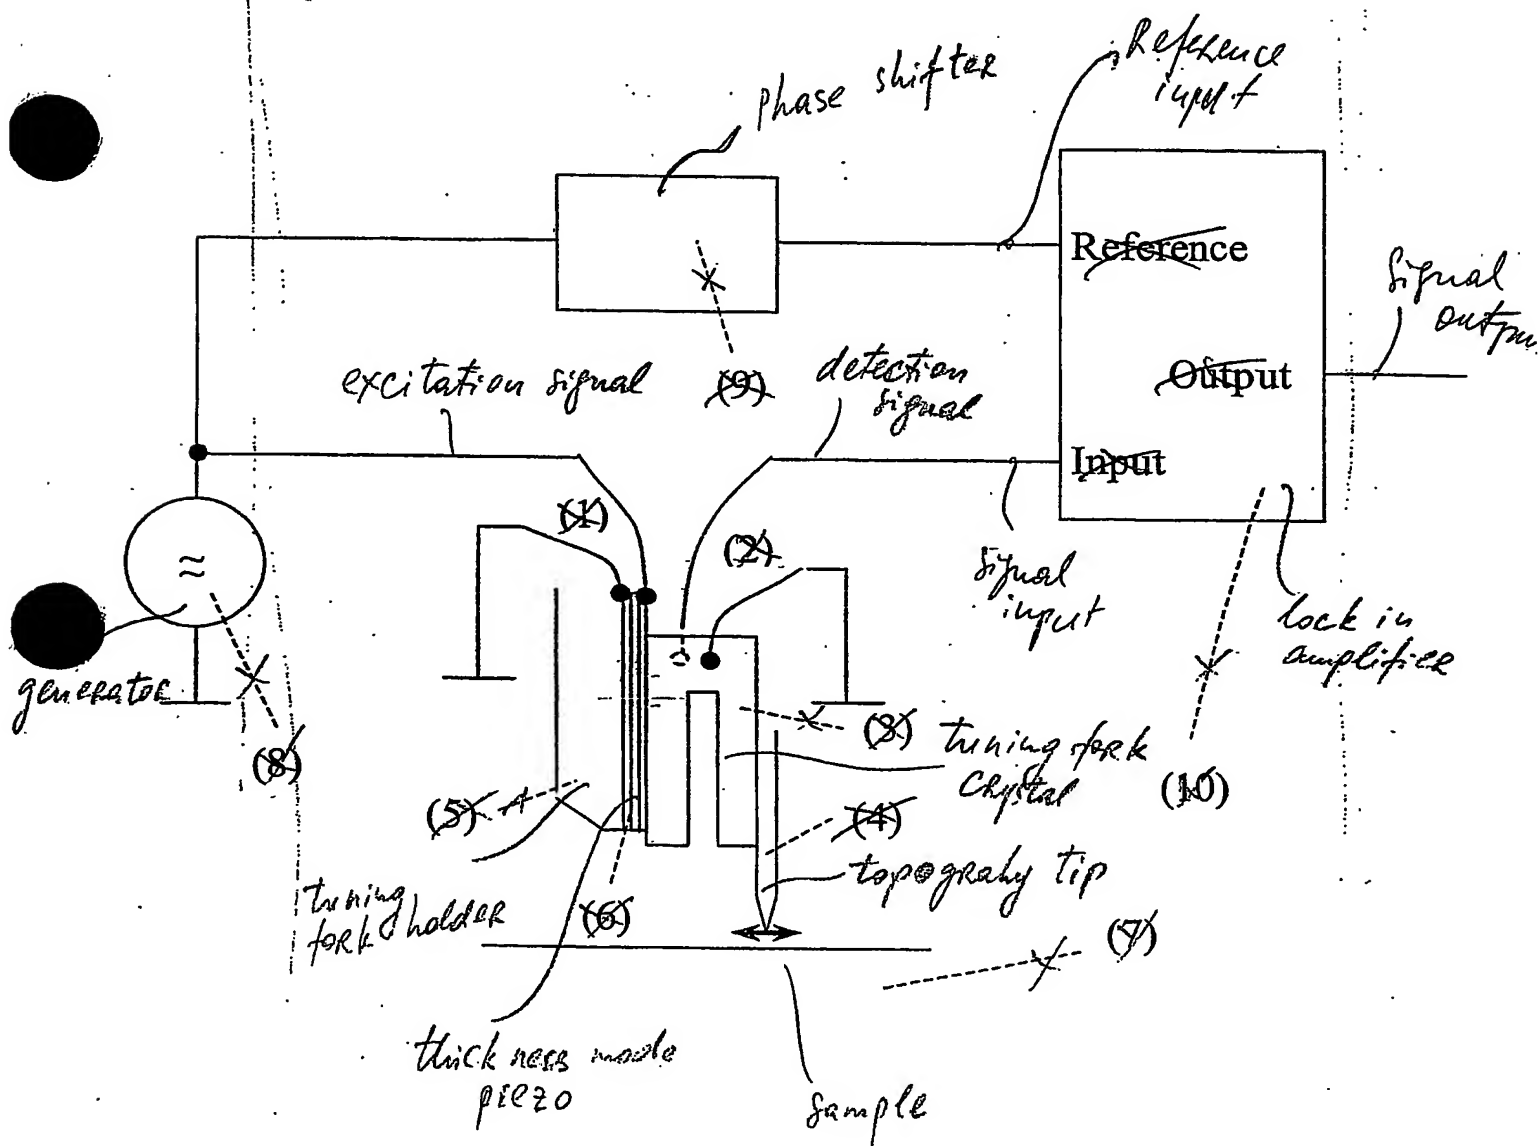 phase shifter
Reference
input
Reference
Signal
outpu
Output
(9)
excitation signal
detection
signal
Input
(1)
(2)
≈
signal
input
lock in
amplifier
generator
(8)
(3)
tuning fork
crystal
(10)
(5)
(4)
topograhy tip
tuning
fork holder
(6)
(7)
thickness mode
piezo
sample